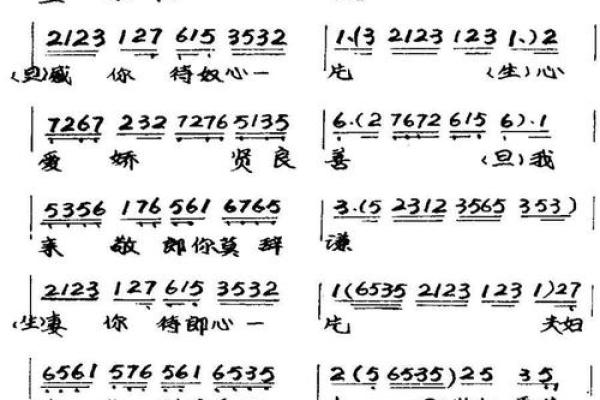 2123 127 615 3532 | 1·(3 2123 123 1·)2
(旦)感 你 待奴心一 片 (生)心
7267 232 7276 5135 | 6·(2 7672 615 6)·1
爱 娇 贤良 善 (旦)我
5356 176 561 6765 | 3·(5 2312 3565 353)
来 敬 郎你莫辞 谦
2123 127 615 3532 | 1(6535 2123 123 1)27
(生)妻 你 待郎心一 片 夫妇
6561 576 561 6535 | 2(5 6535)25 35